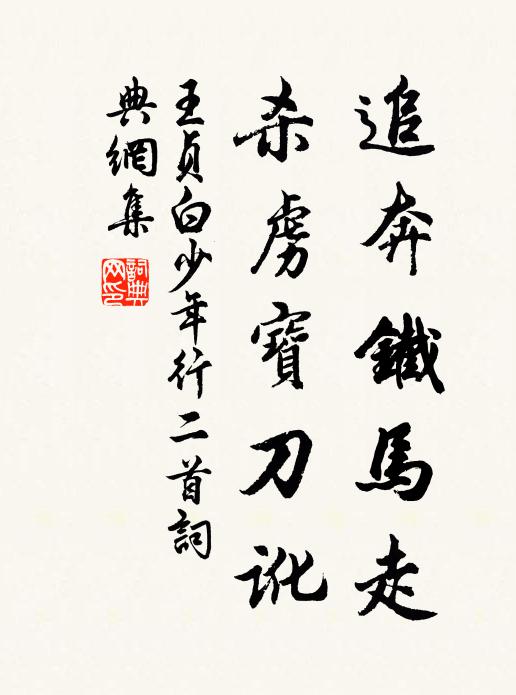 追奔鐵馬走
杀虜寶刀訛
王貞白少年行二首詞
典網集
詞典
网印